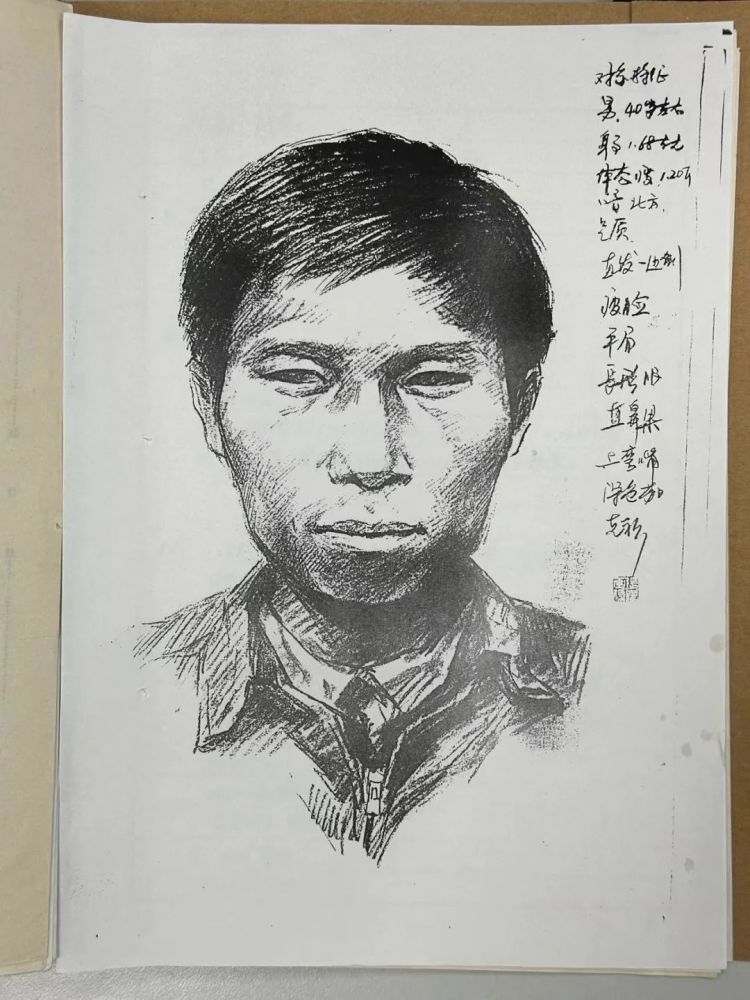 对象特征
男，40岁左右
身高1.68左右
体态瘦，120斤
口音北方，
气质
直发一边倒
瘦脸
平眉
長 眼
直鼻梁
上弯嘴
深色夹
克衫